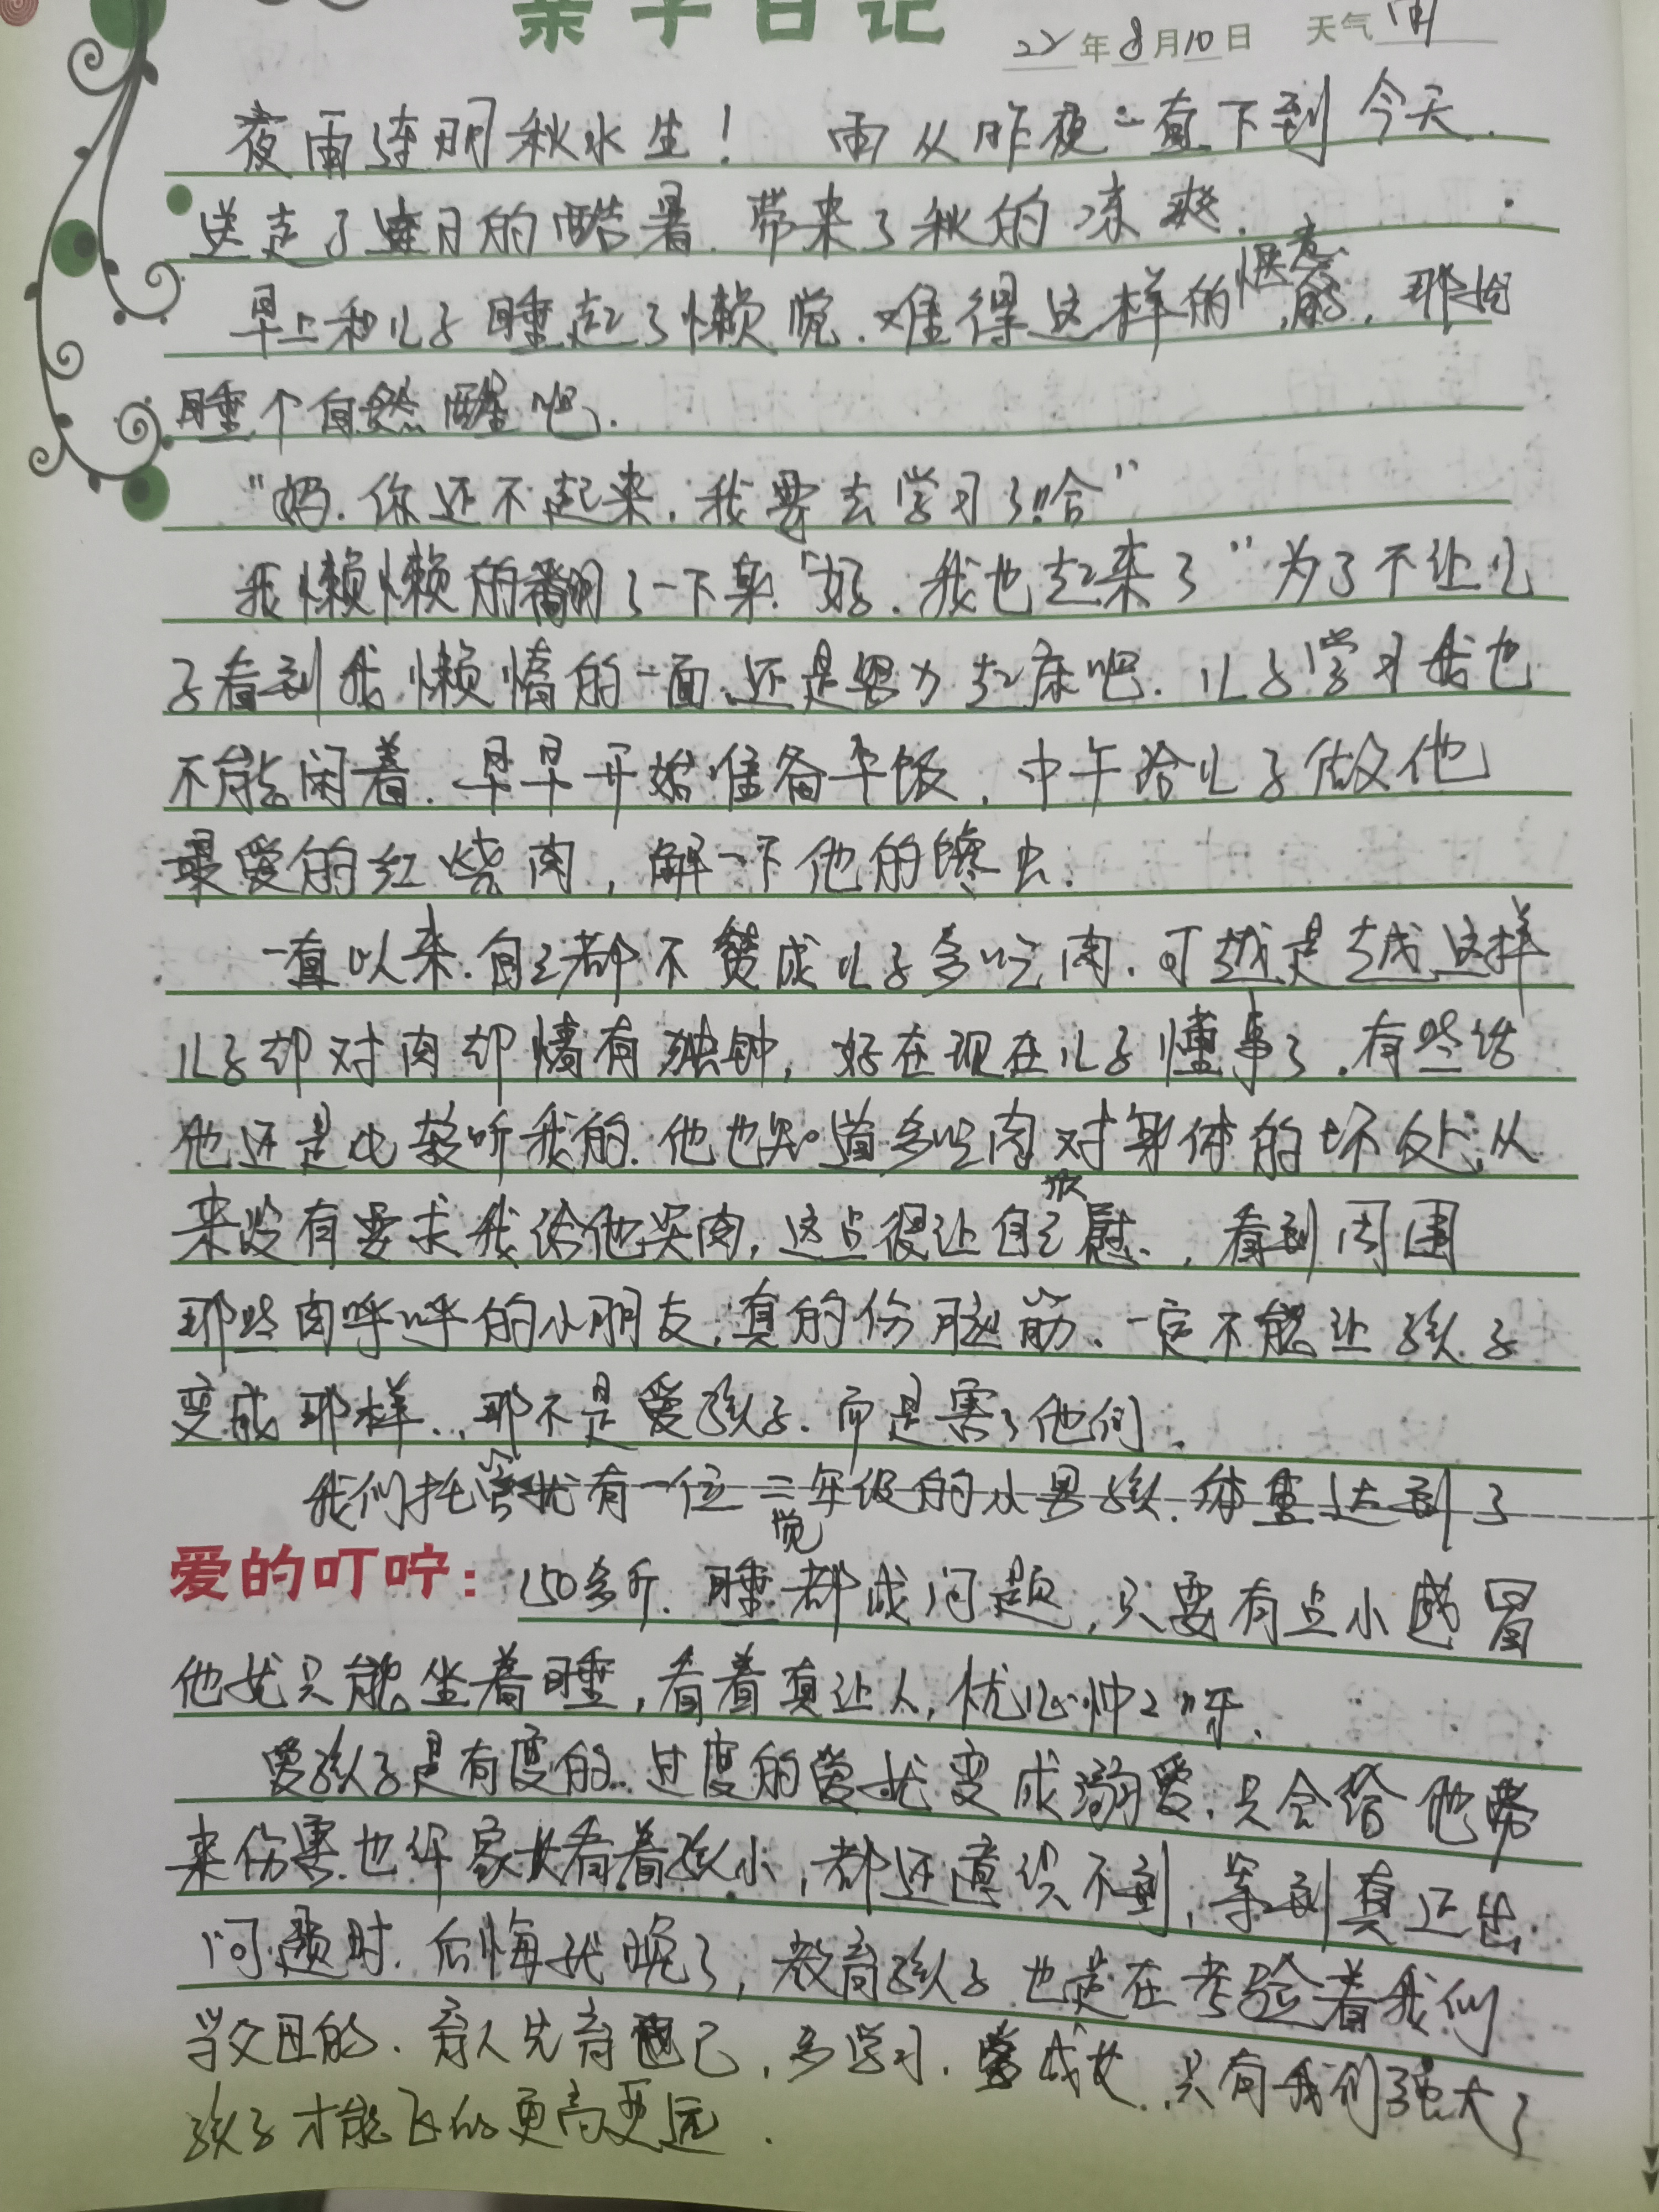 亲子日记
22年8月10日 天气 雨
夜雨连明秋水生！ 雨从昨夜一直下到今天.
送走了连日的酷暑.带来了秋的凉爽.
早上和儿子睡起了懒觉.难得这样的惬意.那就
睡个自然醒吧.
"妈.你还不起来.我要去学习了哈"
我懒懒的翻了一下身."好.我也起来了"为了不让儿
子看到我懒惰的一面.还是努力起床吧.儿子学习我也
不能闲着.早早开始准备午饭.中午给儿子做他
最爱的红烧肉,解一下他的馋虫.
一直以来.自己都不赞成儿子多吃肉.可越是越这样
儿子却对肉却情有独钟,好在现在儿子懂事了.有些话
他还是比较听我的.他也知道多吃肉对身体的坏处,从
来没有要求我给他买肉,这点很让自己欣慰.,看到周围
那些肉呼呼的小朋友,真的伤脑筋.一定不能让孩子
变成那样...那不是爱孩子.而是害了他们.
我们托管就有一位二年级的小男孩.体重达到了
爱的叮咛: 150多斤.睡觉都成问题,只要有点小感冒
他就只能坐着睡,看着真让人,忧心忡忡呀.
爱孩子是有度的..过度的爱就变成溺爱.只会给他带
来伤害.也许家长看着孩小,都还意识不到,等到真正出
问题时.后悔就晚了,教育孩子也是在考验着我们
当父母的.育人先育己,多学习.,只有我们强大了
孩子才能飞的更高更远.